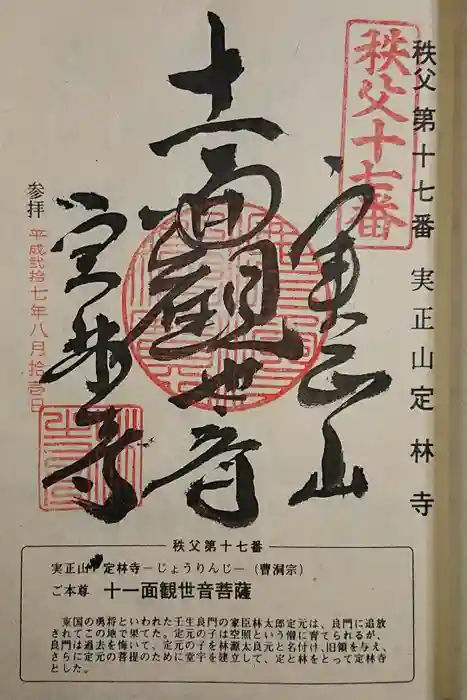 秩父第十七番　実正山定林寺
秩父十七番
実正山
十一面観世音
定林寺
参拝　平成弐拾七年八月拾壱日
秩父第十七番
実正山　定林寺－じょうりんじ－（曹洞宗）
ご本尊　十一面観世音菩薩
東国の勇将といわれた壬生良門の家臣林太郎定元は、良門に追放
されてこの地で果てた。定元の子は空照という僧に育てられるが、
良門は過去を悔いて、定元の子を林源太良元と名付け、旧領を与え、
さらに定元の菩提のために堂宇を建立して、定と林をとって定林寺
とした。